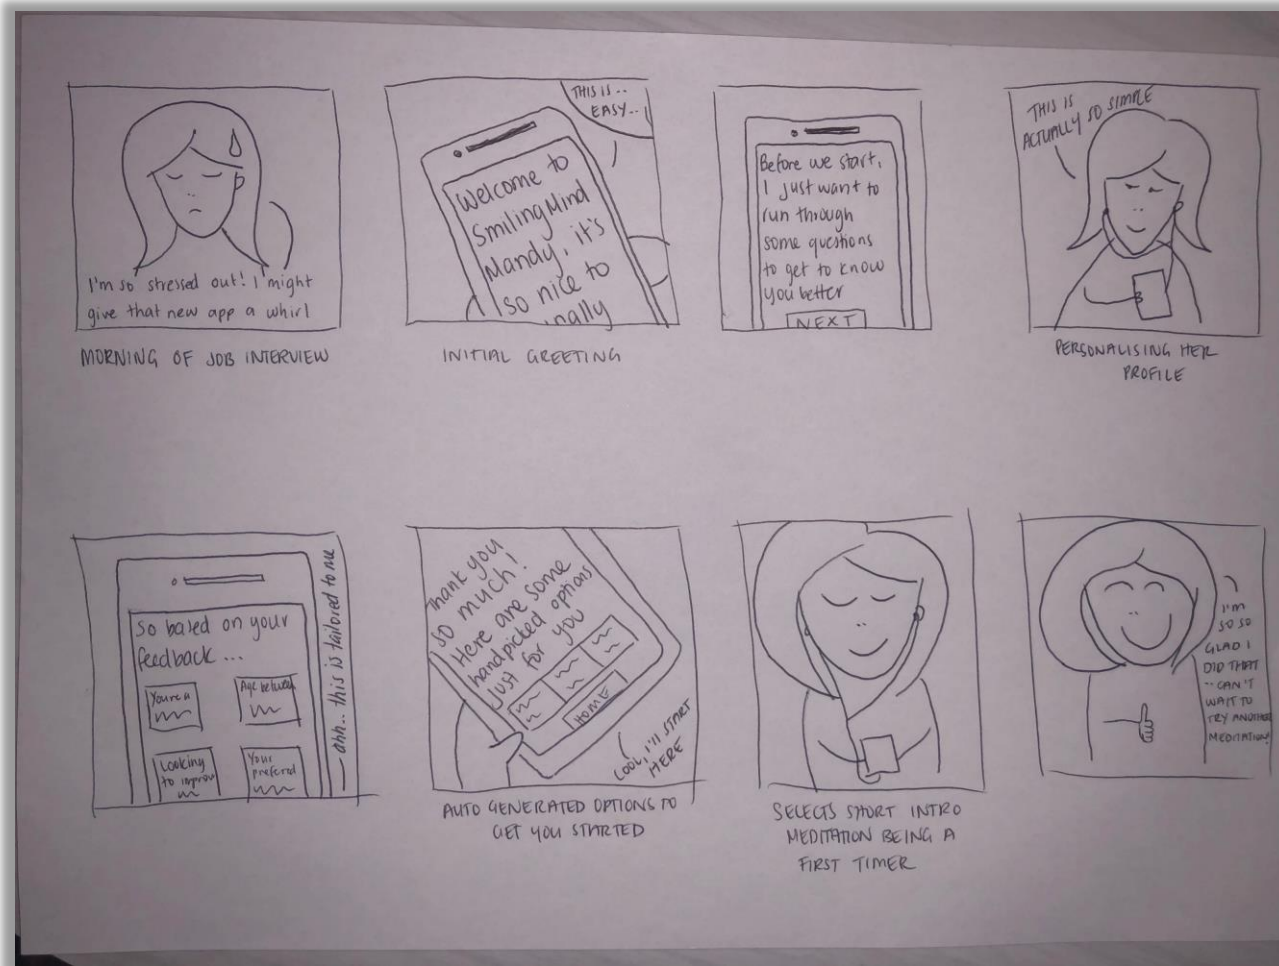 I'm so stressed out! I might
give that new app a whirl
MORNING OF JOB INTERVIEW
THIS IS..
EASY..
Welcome to
SmilingMind
Mandy, it's
so nice to
nally
INITIAL GREETING
Before we start,
I just want to
run through
some questions
to get to know
you better
NEXT
THIS IS
ACTUALLY SO SIMPLE
PERSONALISING HER
PROFILE
So based on your
feedback...
You're a
Age between
Looking
to improv
Your
preferred
ahh.. this is tailored to me
Thank you
so much!
Here are some
handpicked options
just for you
HOME
COOL, I'LL START
HERE
AUTO GENERATED OPTIONS TO
GET YOU STARTED
SELECTS SHORT INTRO
MEDITATION BEING A
FIRST TIMER
I'm
SO SO
GLAD I
DID THAT
.. CAN'T
WAIT TO
TRY ANOTHER
MEDITATION!